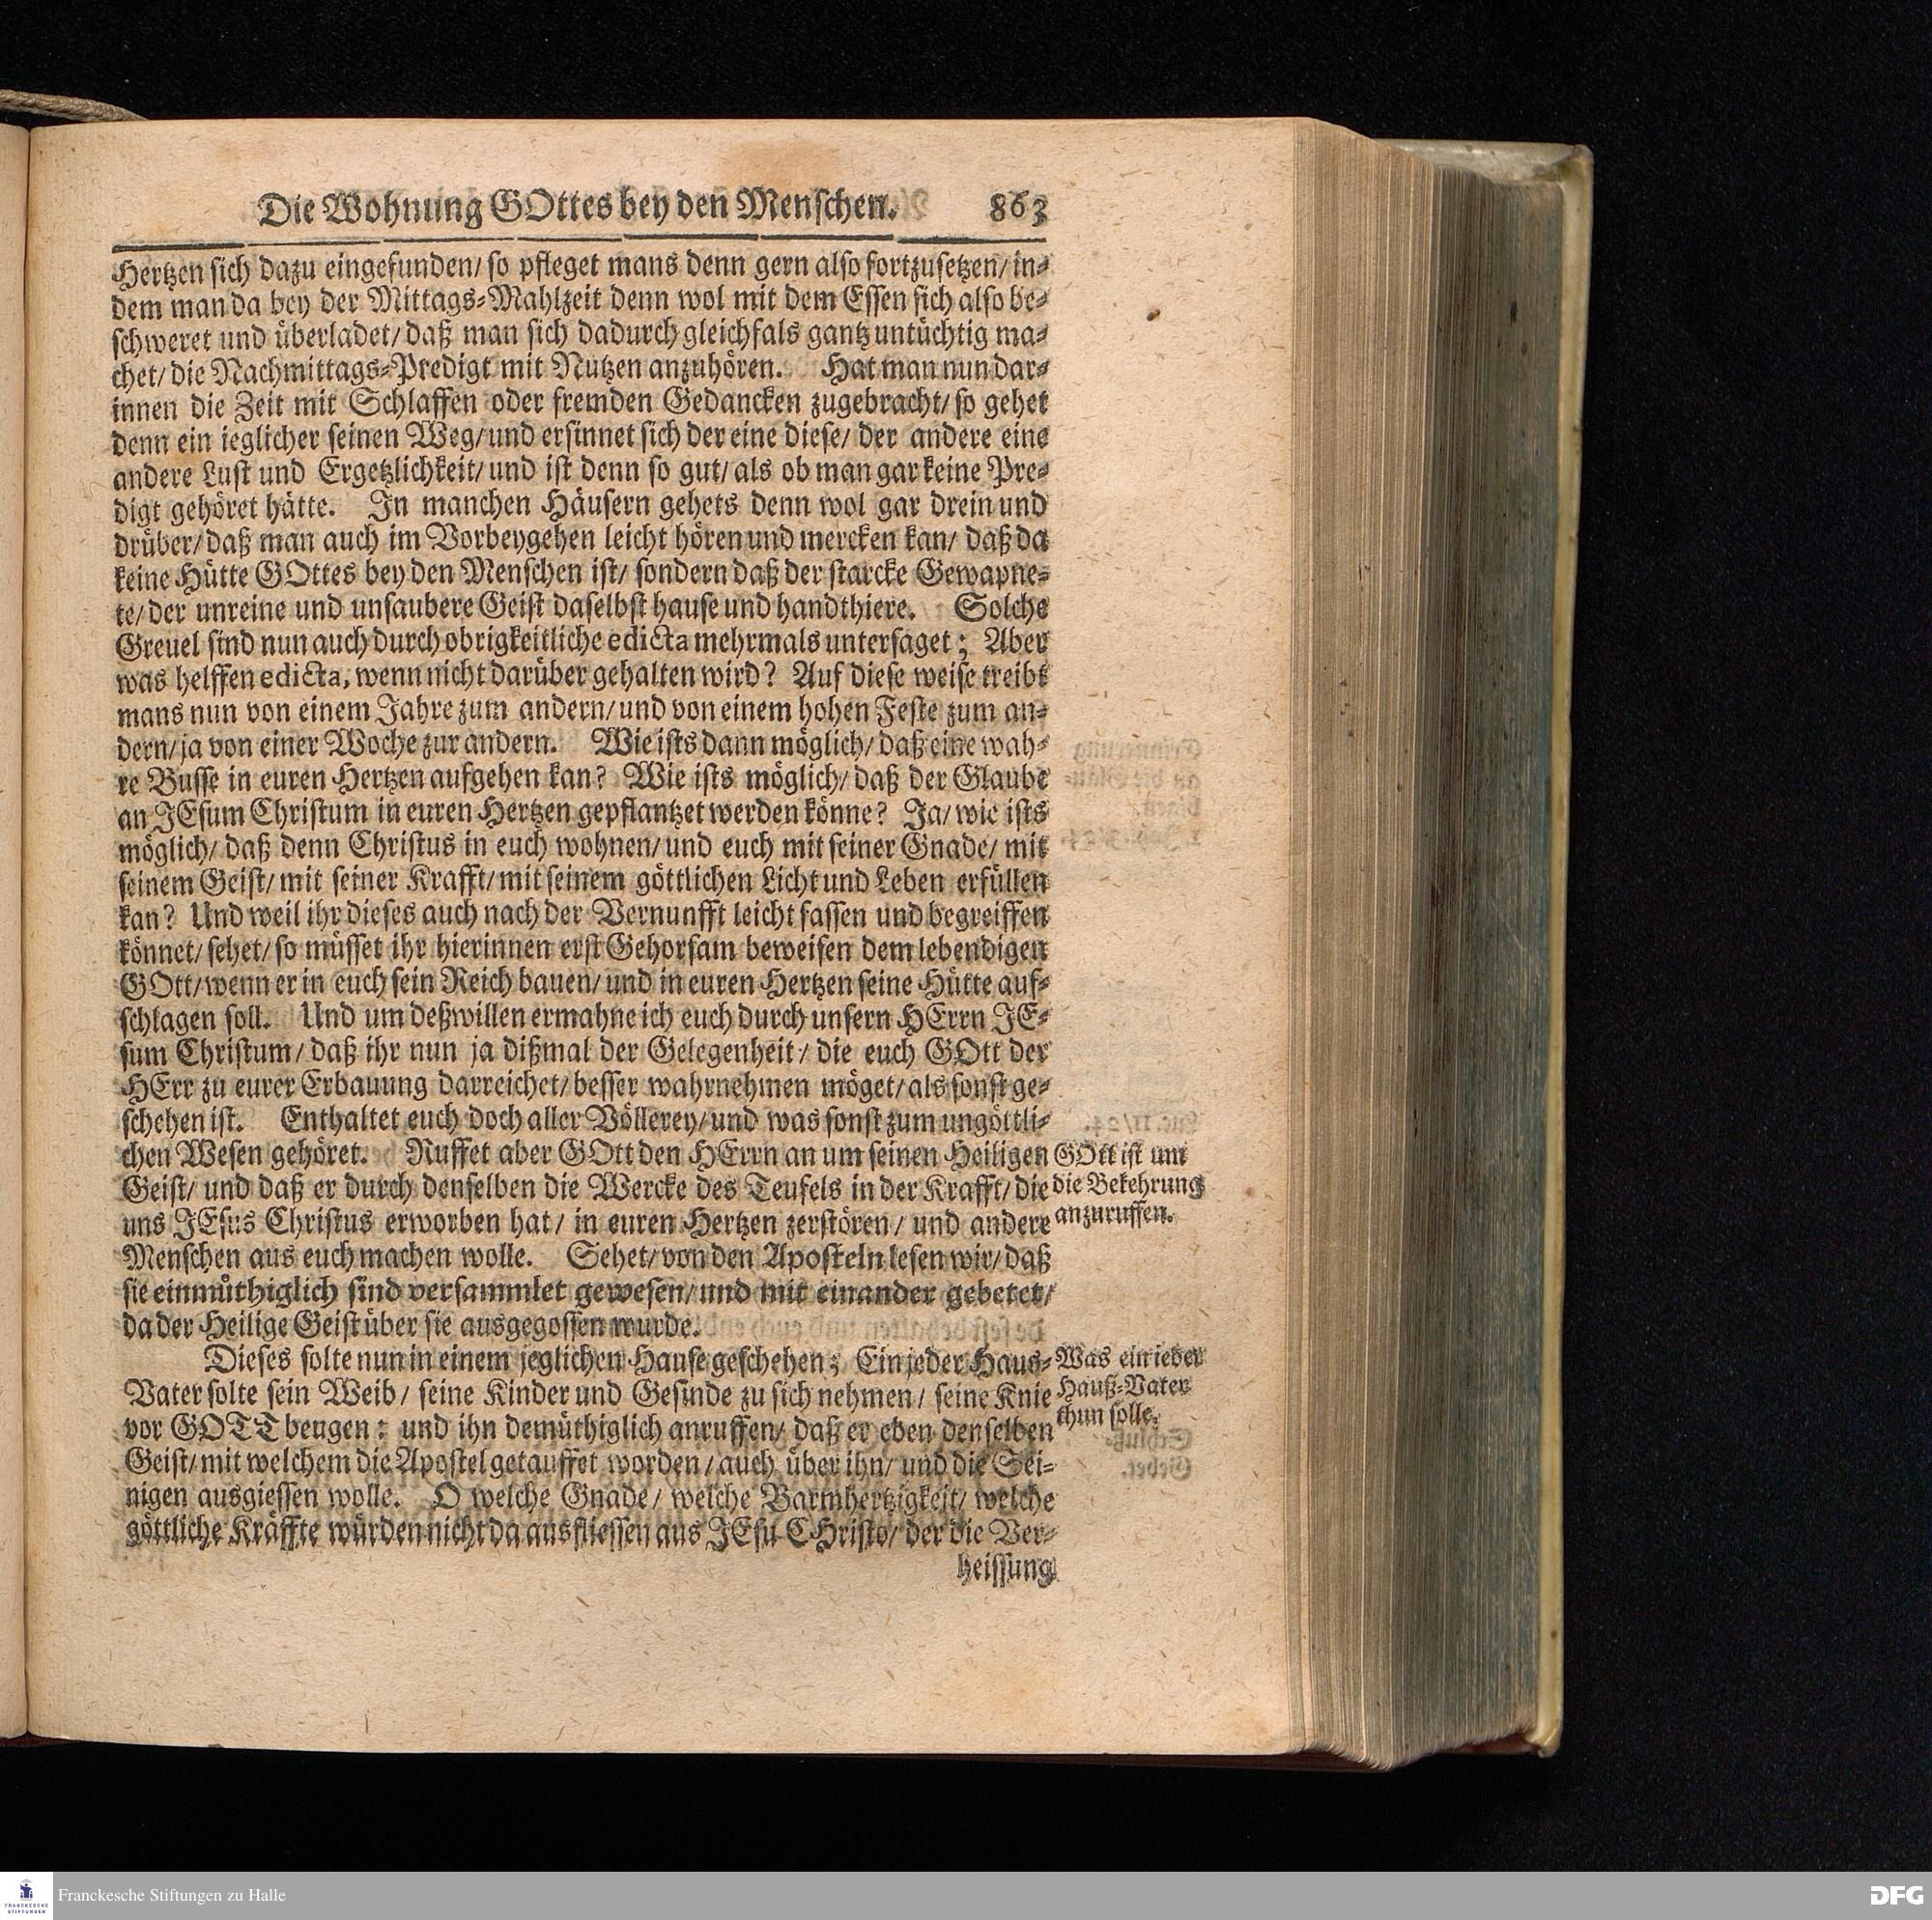 Die Wohnung GOttes bey den Menschen. 863
Hertzen sich dazu eingefunden/ so pfleget mans denn gern also fortzusetzen/ in-
dem man da bey der Mittags-Mahlzeit denn wol mit dem Essen sich also be-
schweret und überladet/ daß man sich dadurch gleichfals gantz untüchtig ma-
chet/ die Nachmittags-Predigt mit Nutzen anzuhören. Hat man nun dar-
innen die Zeit mit Schlaffen oder fremden Gedancken zugebracht/ so gehet
denn ein ieglicher seinen Weg/ und ersinnet sich der eine diese/ der andere eine
andere Lust und Ergetzlichkeit/ und ist denn so gut/ als ob man gar keine Pre-
digt gehöret hätte. In manchen Häusern gehets denn wol gar drein und
drüber/ daß man auch im Vorbeygehen leicht hören und mercken kan/ daß da
keine Hütte GOttes bey den Menschen ist/ sondern daß der starcke Gewapne-
te/ der unreine und unsaubere Geist daselbst hause und handthiere. Solche
Greuel sind nun auch durch obrigkeitliche edicta mehrmals untersaget; Aber
was helffen edicta, wenn nicht darüber gehalten wird? Auf diese weise treibt
mans nun von einem Jahre zum andern/ und von einem hohen Feste zum an-
dern/ ja von einer Woche zur andern. Wie ists dann möglich/ daß eine wah-
re Busse in euren Hertzen aufgehen kan? Wie ists möglich/ daß der Glaube
an JEsum Christum in euren Hertzen gepflantzet werden könne? Ja/ wie ists
möglich/ daß denn Christus in euch wohnen/ und euch mit seiner Gnade/ mit
seinem Geist/ mit seiner Krafft/ mit seinem göttlichen Licht und Leben erfüllen
kan? Und weil ihr dieses auch nach der Vernunfft leicht fassen und begreiffen
könnet/ sehet/ so müsset ihr hierinnen erst Gehorsam beweisen dem lebendigen
GOtt/ wenn er in euch sein Reich bauen/ und in euren Hertzen seine Hütte auf-
schlagen soll. Und um deßwillen ermahne ich euch durch unsern HErrn JE-
sum Christum/ daß ihr nun ja dißmal der Gelegenheit/ die euch GOtt der
HErr zu eurer Erbauung darreichet/ besser wahrnehmen möget/ als sonst ge-
schehen ist. Enthaltet euch doch aller Völlerey/ und was sonst zum ungöttli-
chen Wesen gehöret. Ruffet aber GOtt den HErrn an um seinen Heiligen
Geist/ und daß er durch denselben die Wercke des Teufels in der Krafft/ die
uns JEsus Christus erworben hat/ in euren Hertzen zerstören/ und andere
Menschen aus euch machen wolle. Sehet/ von den Aposteln lesen wir/ daß
sie einmüthiglich sind versammlet gewesen/ und mit einander gebetet/
da der Heilige Geist über sie ausgegossen wurde.
GOtt ist um
die Bekehrung
anzuruffen.
Dieses solte nun in einem jeglichen Hause geschehen; Ein jeder Haus-
Vater solte sein Weib/ seine Kinder und Gesinde zu sich nehmen/ seine Knie
vor GOTT beugen: und ihn demüthiglich anruffen/ daß er eben denselben
Geist/ mit welchem die Apostel getauffet worden/ auch über ihn/ und die Sei-
nigen ausgiessen wolle. O welche Gnade/ welche Barmhertzigkeit/ welche
göttliche Kräffte würden nicht da ausfliessen aus JEsu CHristo/ der die Ver-
heissung
Was ein ieder
Hauß-Vater
thun solle.
Franckesche Stiftungen zu Halle
FRANCKESCHE
STIFTUNGEN
DFG